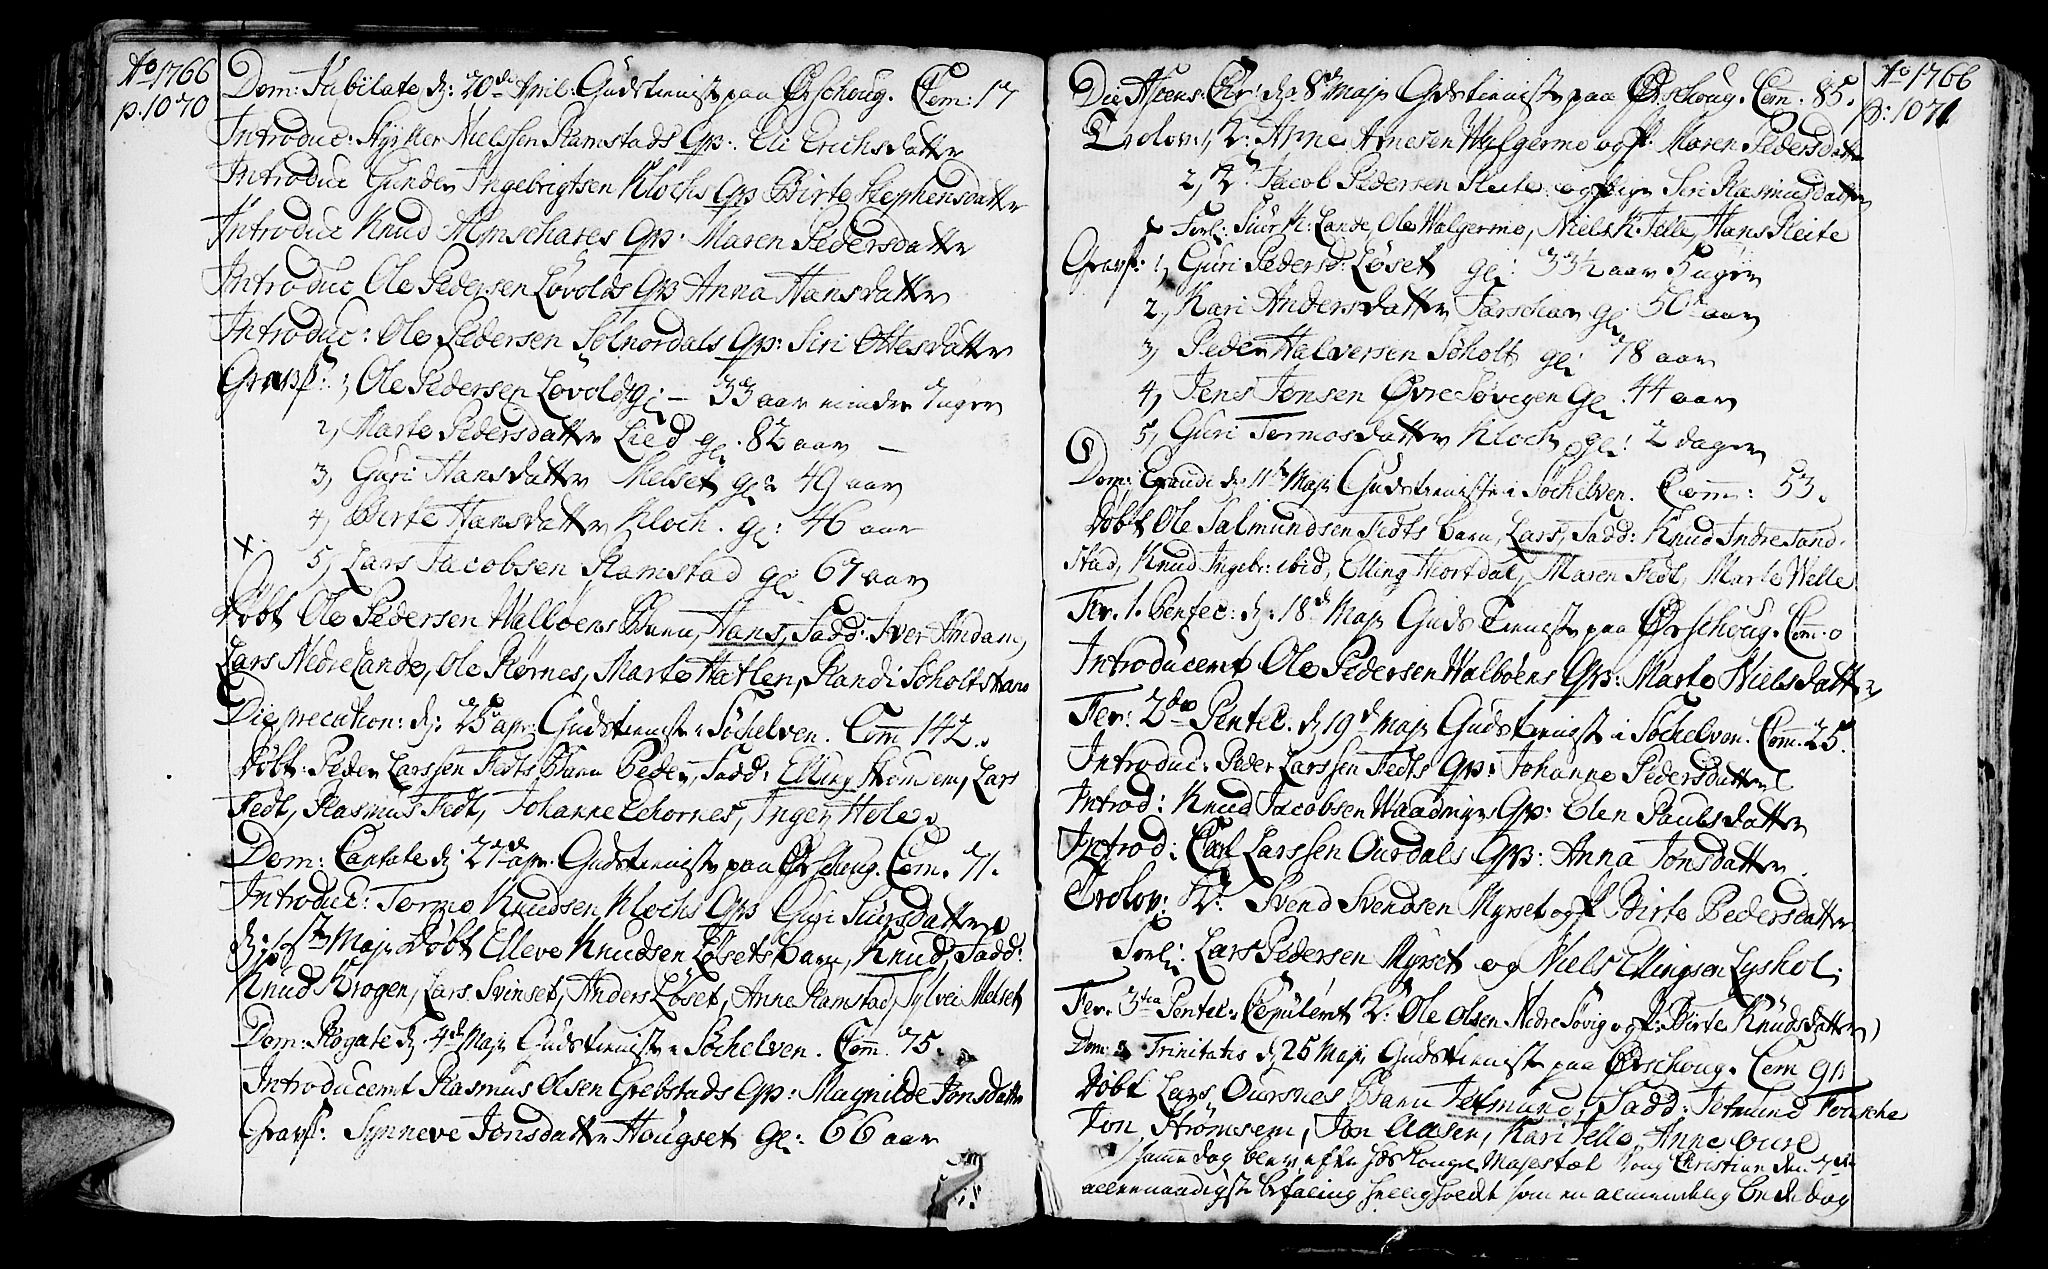 Ao 1766
p. 1070
Dom: Jubilate d: 20de April. Gudstienist paa Ørschoug. Com: 17
Introduc: Nielssen Ramstads Qv: Eli Erichsdatter
Introduc Gunder Ingebrigtsen Klochs Qv: Birte Stephensdatter
Introduc Knud Qv: Maren Pedersdatter
Introduc Ole Pedersen Løvolds Qv: Anna Hansdatter
Introduc: Ole Pedersen Solnordals Qv: Siri Ottesdatter
Gravf: 1, Ole Pedersen Løvold gl: 33 aar minder 7 uger
2, Marte Pedersdatter Lied gl. 82 aar
3, Guri Hansdatter Melset gl: 49 aar
4, Birte Hansdatter Kloch. gl: 46 aar
x. 5, Lars Jacobsen Ramstad gl: 67 aar
Døbt Ole Pedersen Walbøens Barn, Hans, Fadd: Iver Amdam,
Lars Nedre Lande, Ole Rørnes, Marte Hatlen, Randi Søholtstran
Die precation: d: 25 apr: Gudstienist i Søchelven. Com 142.
Døbt: Peder Larssen Fedts Barn Peder, Fadd: Elling Strømsem, Lars
Fedt, Rasmus Fedt, Johanne Echornes, Inger Hole.
Dom: Cantate d: 27de apr: Gudstienist paa Ørschoug. Com. 71.
Introduc: Tormo Knudsen Klochs Qv: Guri Siursdatter
d: 1ste Maj Døbt Elleve Knudsen Løsets Barn, Knud, Fadd:
Knud Krogen, Lars Svinset, Anders Løset, Anne Ramstad, Sylvei Melset
Dom: Rogate d: 4de Maj: Gudstienist i Søchelven. Com. 75.
Introducemt Rasmus Olsen Grebstads Qv: Magnilde Jonsdatter
Gravf: Synneve Jonsdatter Hougset gl: 66 aar
Ao 1766
p: 1071
Die Ascens: Chr: d: 8de Maj: Gdstienist paa Ørschoug. Com: 85.
Trolov: 1, K: Arne Arnesen Walgermo og P: Maren Pedersdatter
2, K: Jacob Pedersen Reite og Pige Siri Rasmusdatter
Forl: Siur N: Lande, Ole Walgermo, Niels K Jelle, Hans Reite
Gravf: 1, Guri Pedersd: Løset gl: 33 1/2 aar 5 uger
2, Kari Andersdatter gl: 50 aar
3, Peder Halversen Søholt gl: 78 aar
4, Jens Jonsen Øvre Søvigen gl: 44 aar
5, Guri Tormosdatter Kloch gl: 2 dager
Dom: Exaudi d: 11te Maj: Gudstieniste i Søchelven. Com: 53.
Døbt Ole Salmundsen Fedts barn, Lars, Fadd: Knud Indre Tand-
stad, Knud Ingebr: ibid, Elling Hiortdal, Maren Fedt, Marte Welle
Fer. 1. Pentec. d: 18de Maj: Guds Tienist paa Ørschoug. Com. 0
Introducemt Ole Pedersen Walbøens Qv: Marte Nielsdatter
Fer: 2da Pentec. d: 19de Maj Gudstienist i Søchelven. Com. 25.
Introduc: Peder Larssen Fedts Qv: Johanne Pedersdatter
Introd: Knud Jacobsen Qv: Elen Paulsdatter
Introd: Carl Larssen Ourdals Qv: Anna Jonsdatter.
Trolov: K: Svend Svendsen Myrset og P: Birte Pedersdatter
Forl: Lars Pedersen Myrset og Niels Ellingsen Lyshol:
Fer. 3tia Pentec: Copulemt K: Ole Olsen Nedre Søvig og P: Birte Knudsdatter
Dom: Trinitatis d: 25 Maji Gudstienist paa Ørschoug. Com 90
Døbt Lars Oursnes Barn Jetmund, Fadd: Jetmund
Jon Strømsem, Jon Aasen, Kari Jelle, Anne Oure
samme dag blev efter Hds Kongl Majestæt Kong Christian den 7de
allernaadigste befaling helligholdt som en almindelig bededag